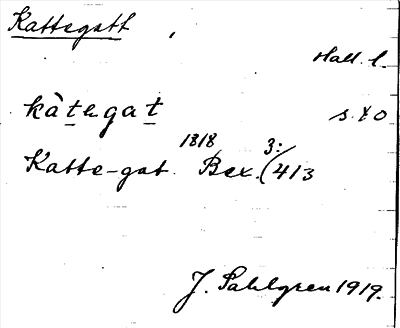 Kattegatt
Hall. l.
kàtegat s. 40
Katte-gat. 1818 Bex. 3:(413
J. Sahlgren 1919.